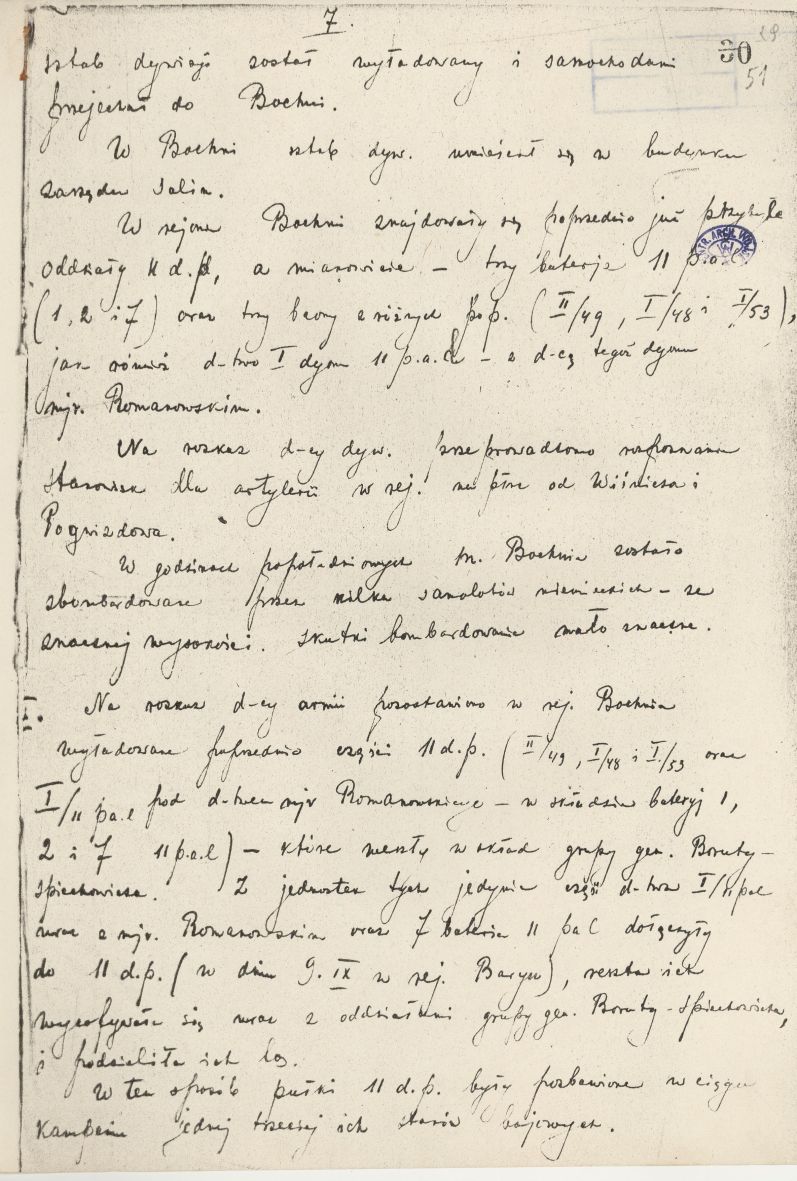 7.
29
30
51
sztab dywizji został wyładowany i samochodami
przejechał do Bochni.
W Bochni sztab dyw. umieścił się w budynku
zarządu Salin.
W rejonie Bochni znajdowały się poprzednio już przybyłe
oddziały 11 d.p., a mianowicie – trzy baterje 11 p.a.l
(1, 2 i 7) oraz trzy baony z różnych p.p. (II/49, I/48 i I/53),
jak również d-two I dyonu 11 p.a.l – z d-cą tegoż dyonu
mjr. Romanowskim.
Na rozkaz d-cy dyw. przeprowadzono rozpoznanie
stanowisk dla artylerii w rej. na płn od Wiśnicza i
Pogwizdowa.
W godzinach popołudniowych m. Bochnia została
zbombardowana przez kilka samolotów niemieckich – ze
znacznej wysokości. Skutki bombardowania mało znaczne.
Na rozkaz d-cy armii pozostawiono w rej. Bochnia
wyładowane poprzednio części 11 d.p. (II/49, I/48 i I/53 oraz
I/11 pa.l pod d-twem mjr Romanowskiego – w składzie bateryj 1,
2 i 7 11 p.a.l) – które weszły w skład grupy gen. Boruty-
Spiechowicza. Z jednostek tych jedynie część d-twa I/11 pal
wraz z mjr. Romanowskim oraz 7 bateria 11 pal dołączyły
do 11 d.p. (w dniu 9.IX w rej. Barycz), reszta ich
wycofywała się wraz z oddziałami grupy gen. Boruty-Spiechowicza,
i podzieliła ich los.
W ten sposób pułki 11 d.p. były pozbawione w ciągu
kampanii jednej trzeciej ich stanów bojowych.